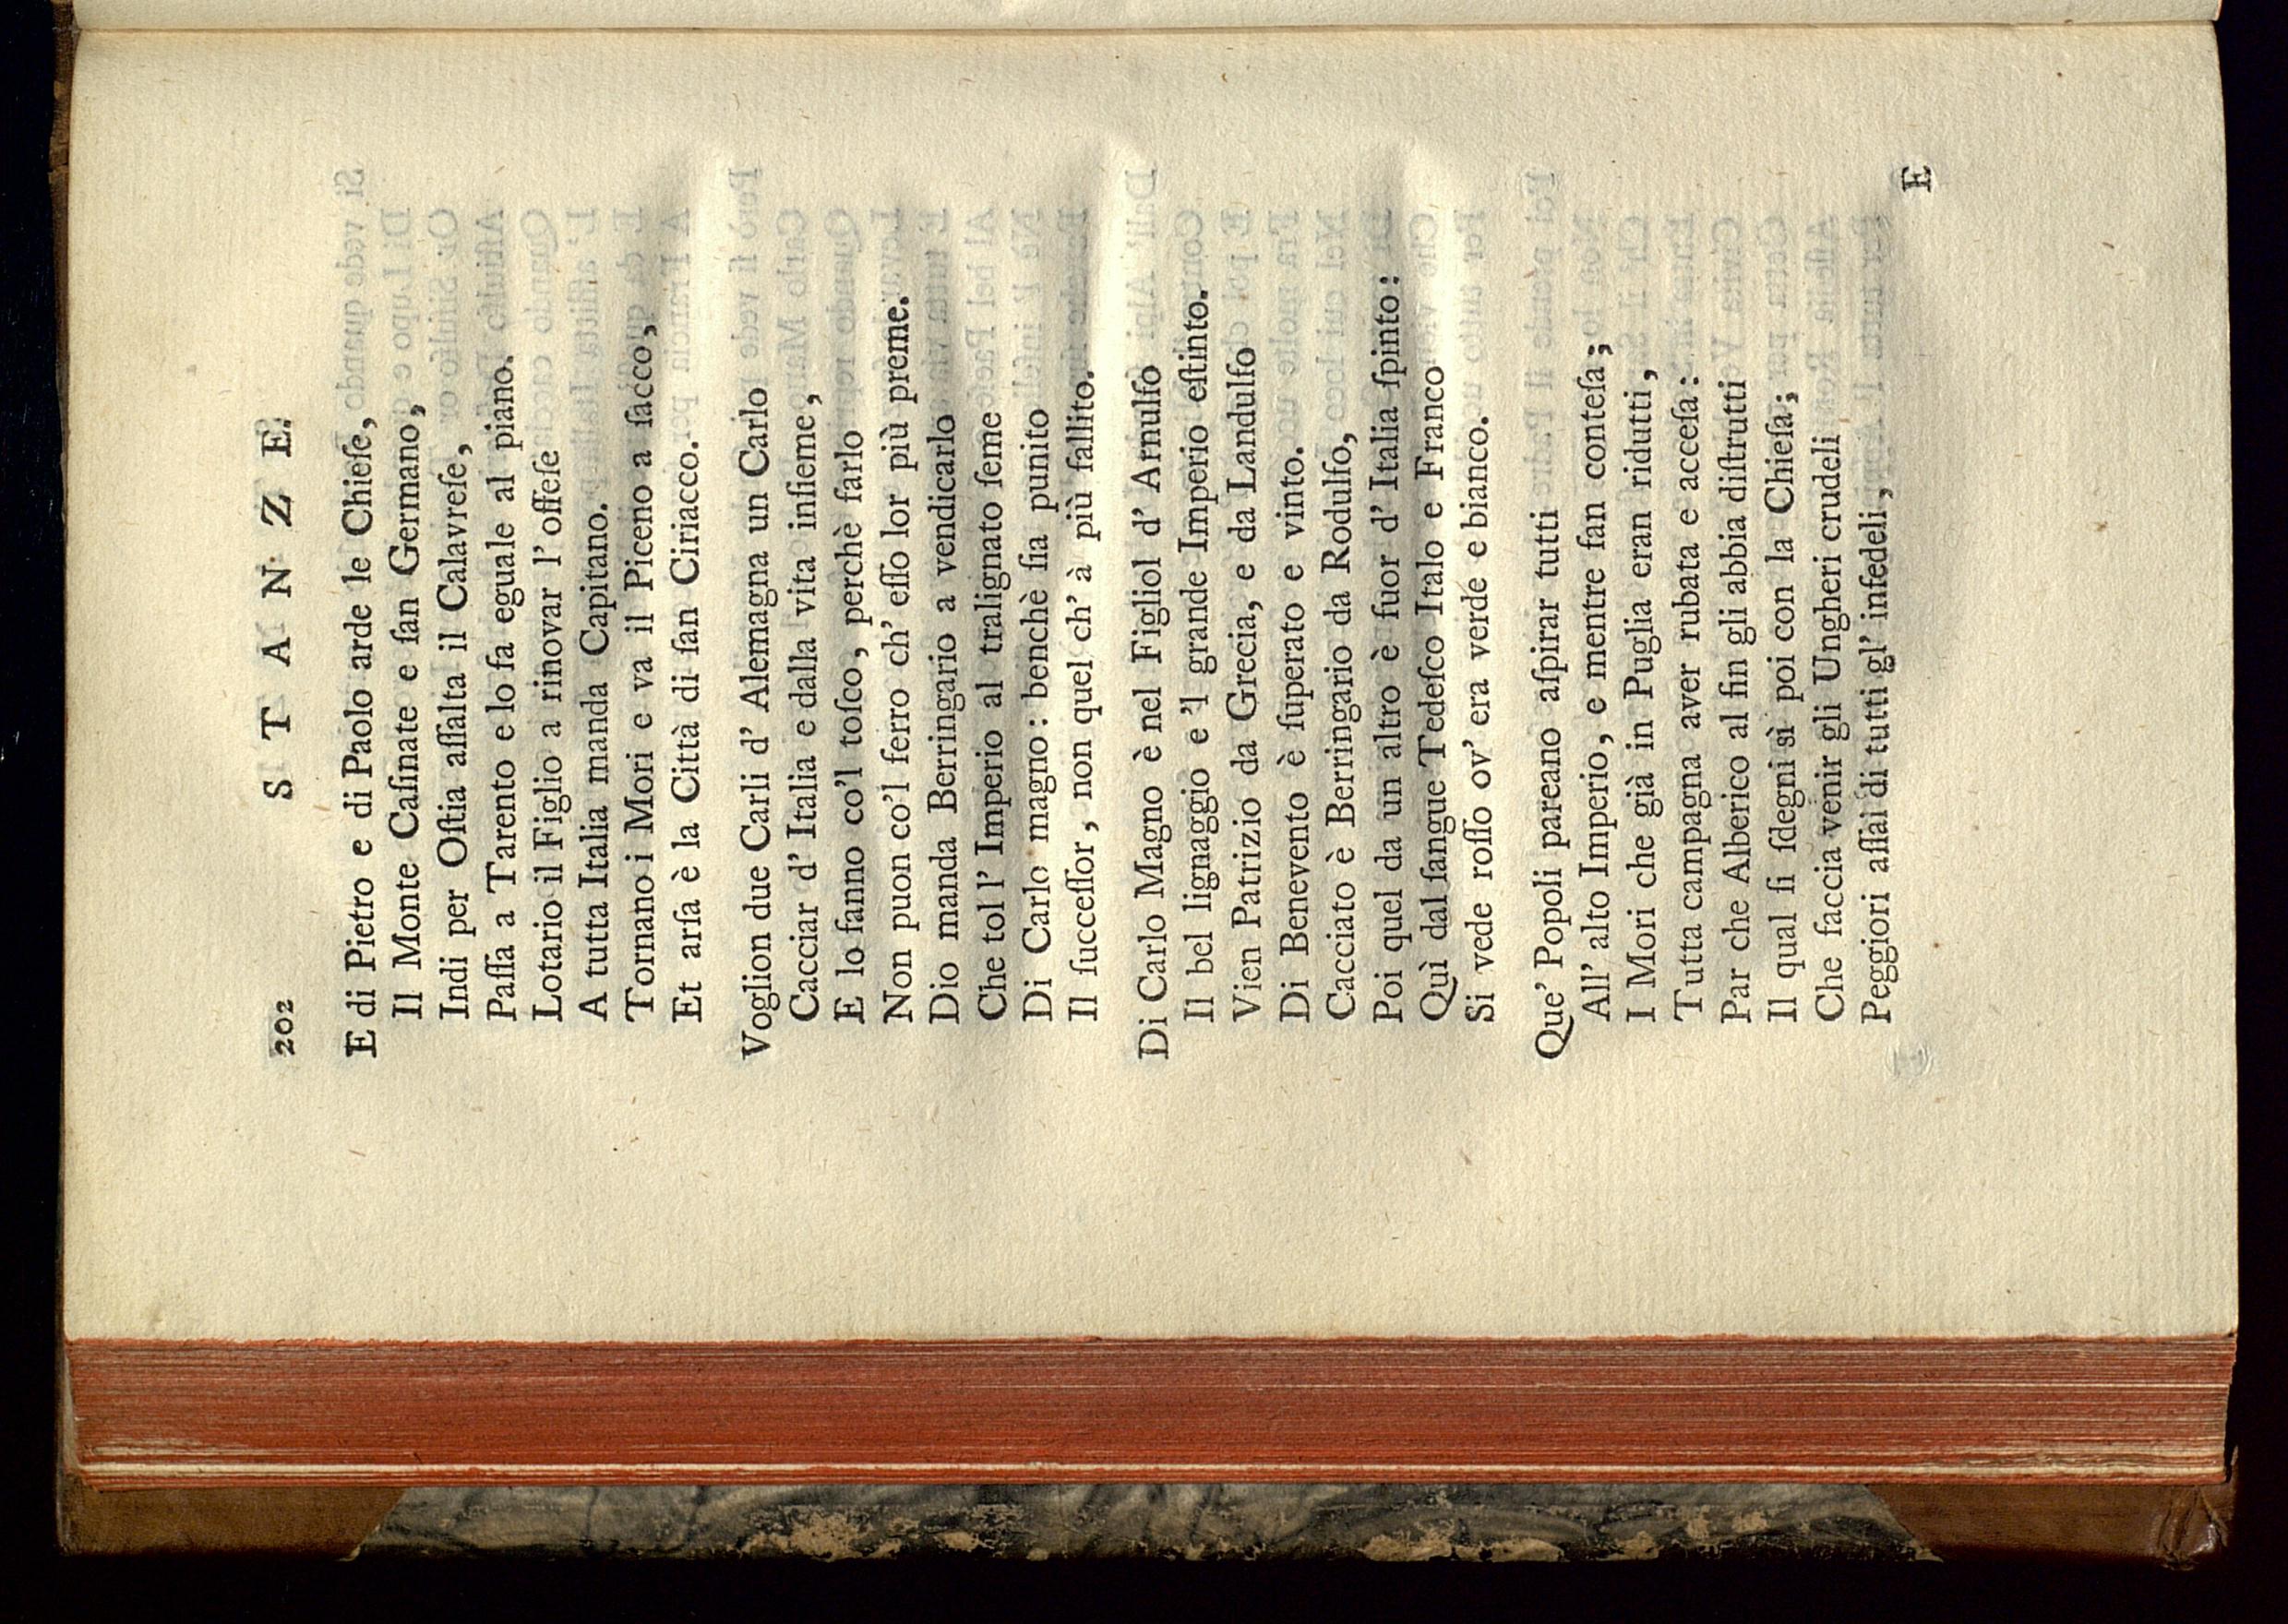 202 STANZE.
E di Pietro e di Paolo arde le Chieſe,
Il Monte Caſinate e ſan Germano,
Indi per Oſtia aſſalta il Calavreſe,
Paſſa a Tarento e lo fa eguale al piano.
Lotario il Figlio a rinovar l' offeſe
A tutta Italia manda Capitano.
Tornano i Mori e va il Piceno a ſacco,
Et arſa è la Città di ſan Ciriacco.
Voglion due Carli d' Alemagna un Carlo
Cacciar d' Italia e dalla vita inſieme,
E lo fanno co'l toſco, perchè farlo
Non puon co'l ferro ch' eſſo lor più preme.
Dio manda Berringario a vendicarlo
Che tol l' Imperio al tralignato ſeme
Di Carlo magno: benchè ſia punito
Il ſucceſſor, non quel ch' à più fallito.
Di Carlo Magno è nel Figliol d' Arnulfo
Il bel lignaggio e'l grande Imperio eſtinto.
Vien Patrizio da Grecia, e da Landulfo
Di Benevento è ſuperato e vinto.
Cacciato è Berringario da Rodulfo,
Poi quel da un altro è fuor d' Italia ſpinto:
Quì dal ſangue Tedeſco Italo e Franco
Si vede roſſo ov' era verde e bianco.
Que' Popoli pareano aſpirar tutti
All' alto Imperio, e mentre fan conteſa;
I Mori che già in Puglia eran ridutti,
Tutta campagna aver rubata e acceſa:
Par che Alberico al fin gli abbia diſtrutti
Il qual ſi ſdegni sì poi con la Chieſa;
Che faccia venir gli Ungheri crudeli
Peggiori aſſai di tutti gl' infedeli,
E